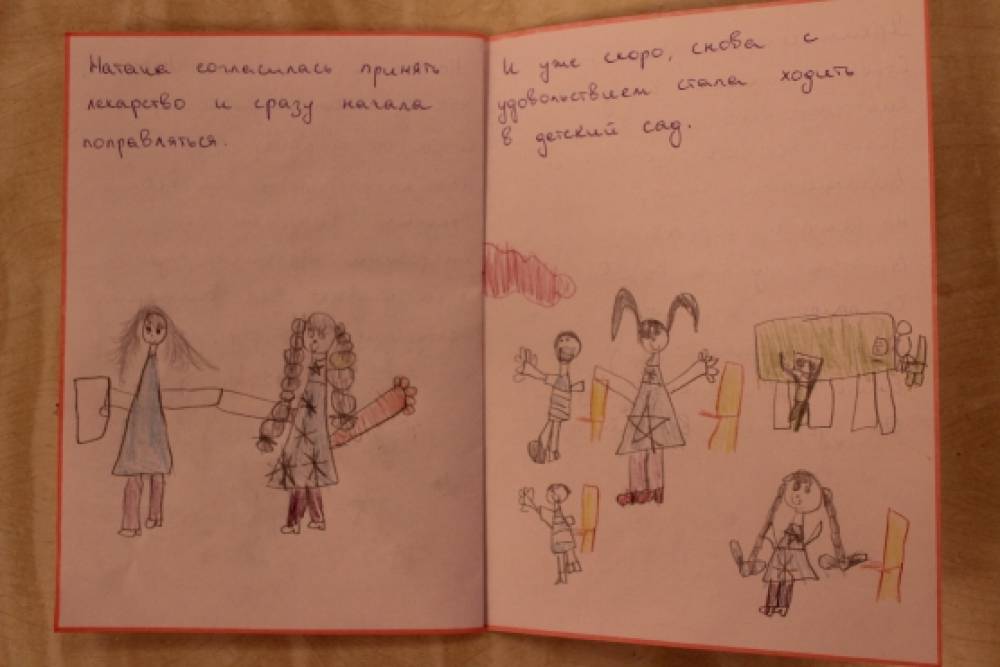 Наташа согласилась принять
лекарство и сразу начала
поправляться.
И уже скоро, снова с
удовольствием стала ходить
в детский сад.